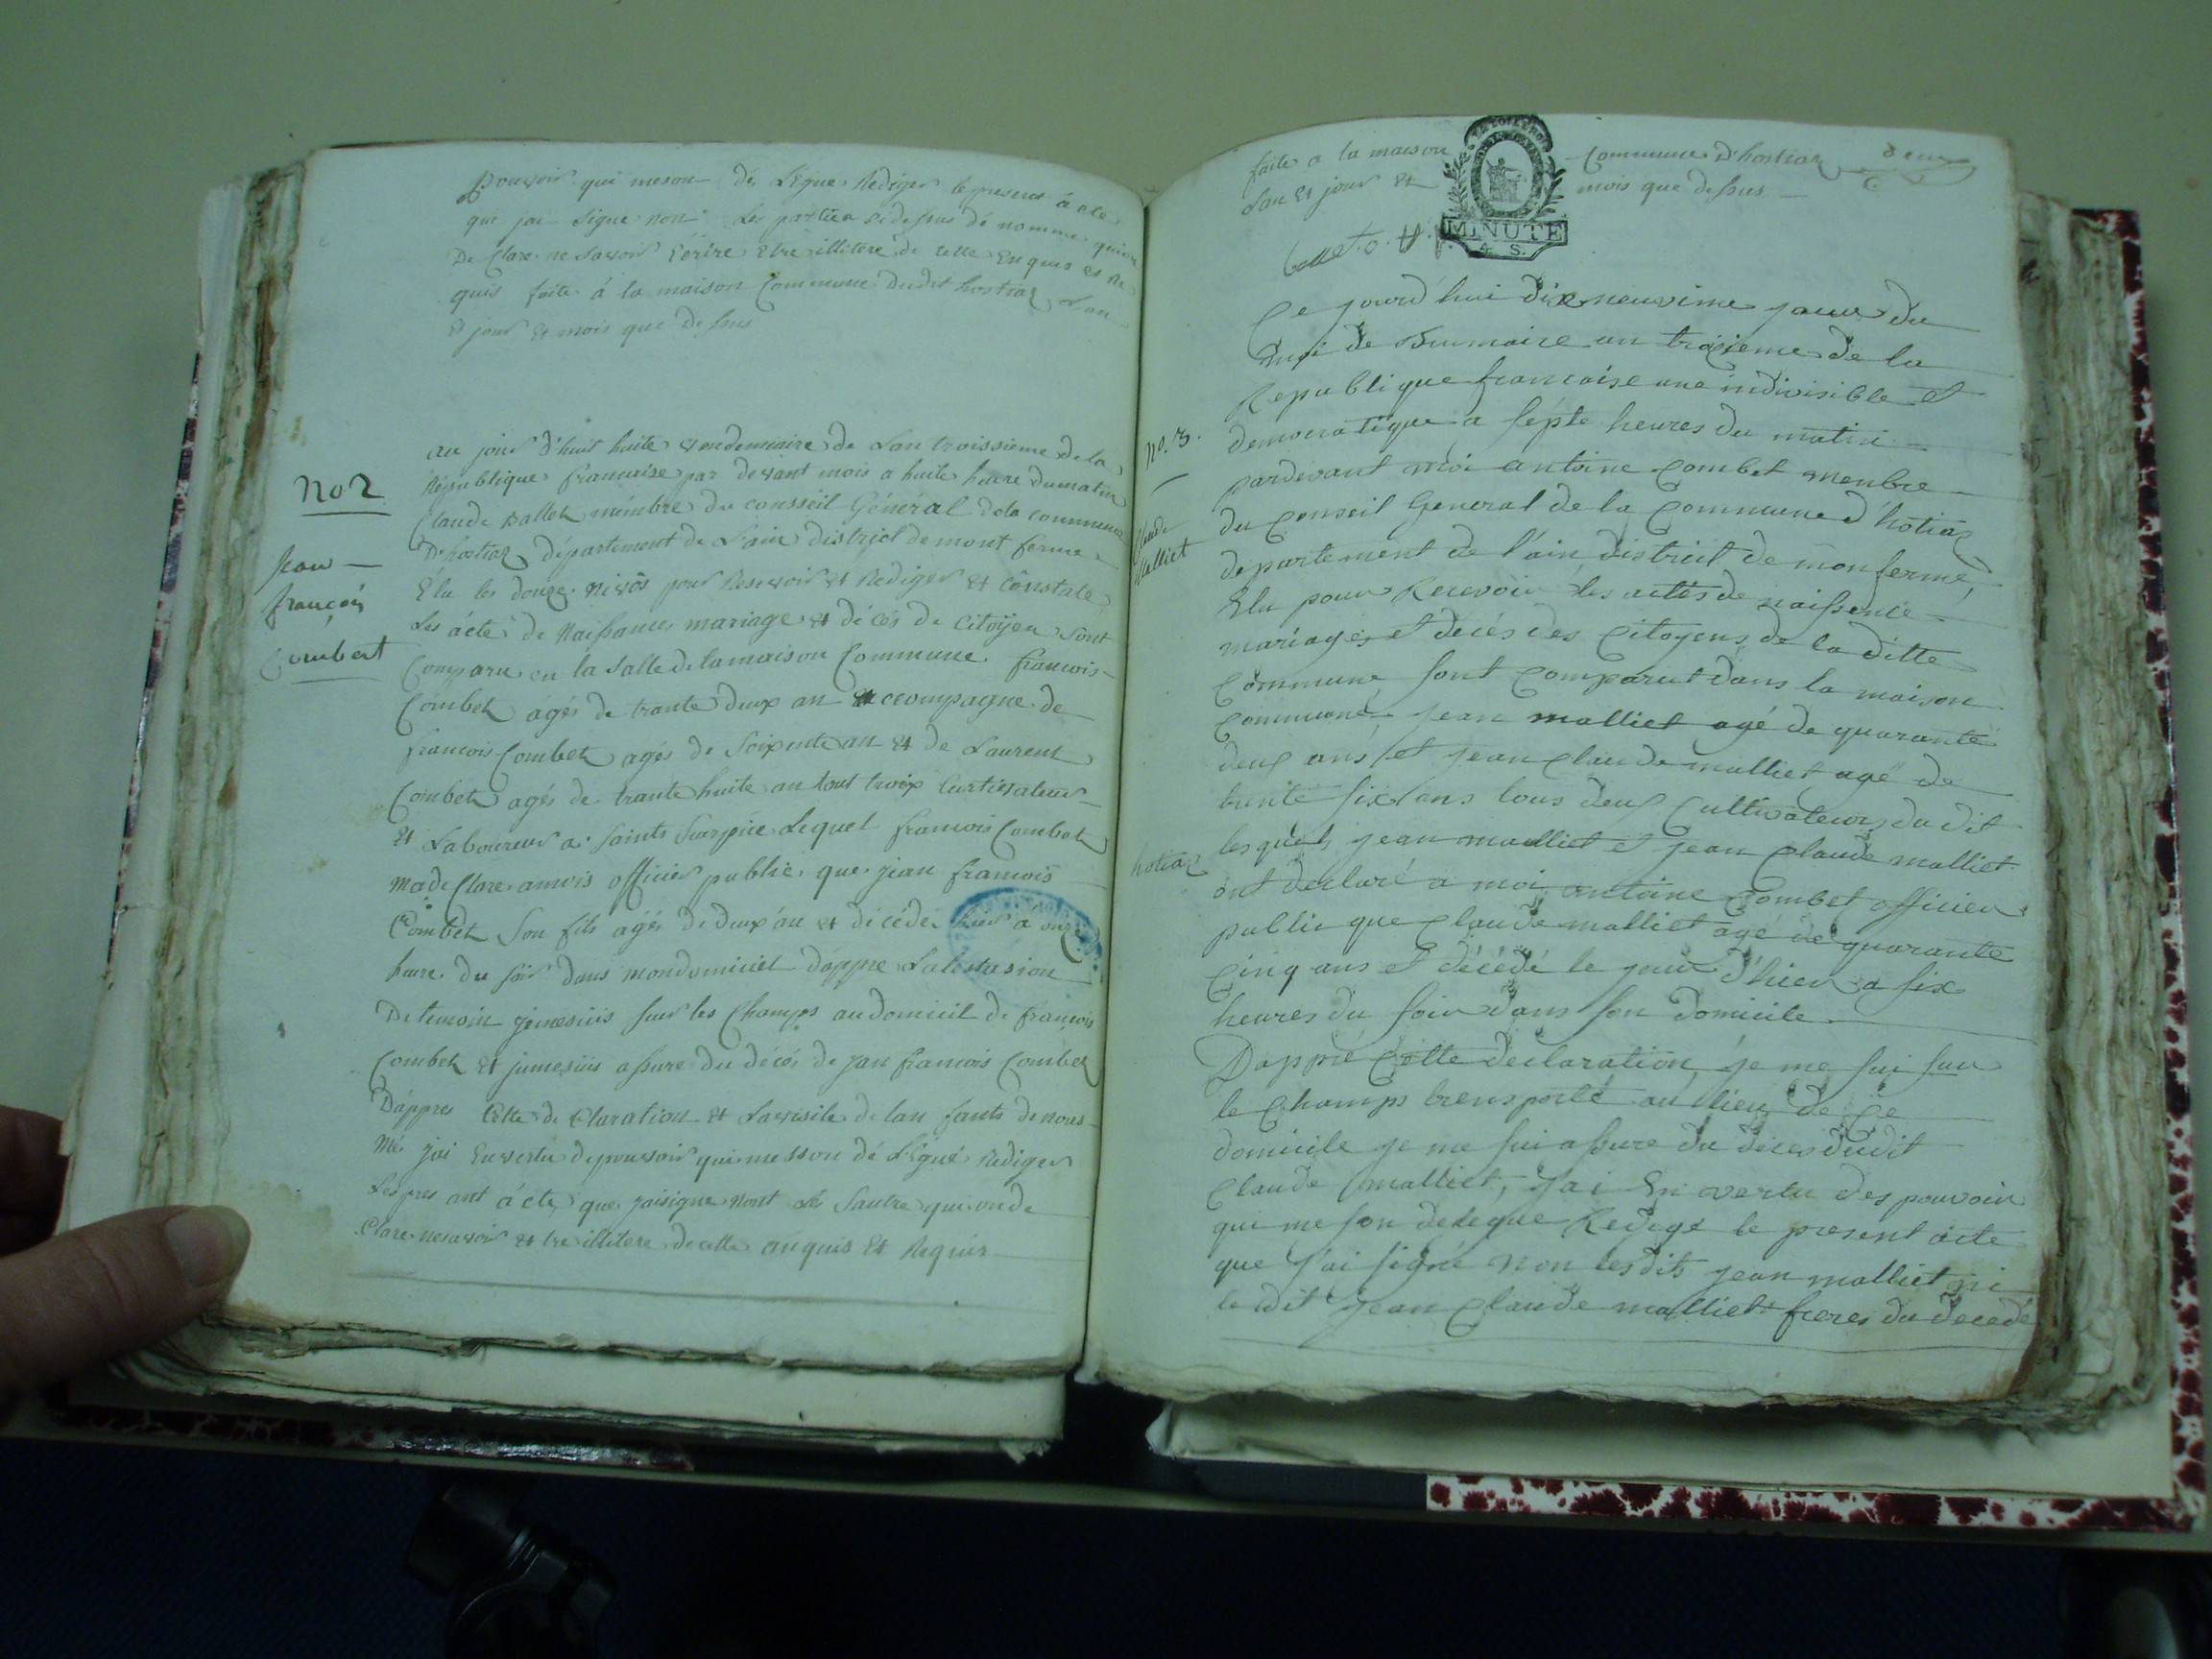 pouvoir qui meson déLégue Rediger le present acte
que jai Signe non Les partiea sidessus dé nomme qui on
De Clare ne savoir Ecrire Etre illitere de celle Enquis et Re
quis faite à la maison Commune dudit hostiaz L'an
Et jour Et mois que dessus
au jour d'huit huite vendemiaire de Lan troissieme de la
République francaise par devant mois a huite heure du matin
Claude Ballet mémbre du consseil Général dela commune
D'hostiaz département de L'ain district de mont ferme
Élu les douze nivôs pour Resevoir et Rediger et constate
Les ácte de Naissance mariage et décés de Citoÿen Sont
Comparu en la Salle de lamaison Commune francois
Combet agés de trante deux an accompagne de
francois Combet agés de Soixente an et de Laurent
Combet agés de trante huite an tout troix Curtivateur
et Laboureur a Saints Surpice Lequel francois Combet
made Clare amois officier public que jean francois
Combet Son fils agés de deux an et décéde hier a onze
heure du soir dans mondomiciel dáppre Latestasion
De temoin jemesuis sur les Champs au domicil de françois
Combet et jumesuis assure du décés de jan francois Combet
Dáppres Cette de Claration et Lavisite de lan fants de nous
mé jai Envertu de pouvoir qui messon dé Légué Rediger
Lespres ant ácte que jaisigne nont Lé Sautre qui onde
Clare nesavoir et tre illitere de cette anquis Et Requis
No 2
jean
françois
Combet
faite a la maison Commune D'hostiaz deux
Lan Et jour Et mois que dessus
MINUTE
4. S.
Ce jourd'hui dixneuvime jour du
moi de Brumaire an troisieme de la
Republique francaise une indivisible et
democratique a septe heures du matin
pardevant moi antoine Combet menbre
du Conseil General de la Commune d'hotiaz
departement de l'ain district de monferme
Elu pour Recevoir les actes de naissence
mariages et decés des Citoyens de la ditte
Commune sont Comparut dans la maison
Commune jean malliet agé de quarante
deux ans et jean Claude malliet agé de
trente six ans tous deux Cultivateurs du dit
hotiaz lesquels jean malliet et jean Claude malliet
ont declaré a moi antoine Combet officier
public que Claude malliet agé de quarante
Cinq ans et décédé le jour d'hier a six
heures du soir dans son domicile
Dappré Cette declaration je me sui sur
le Champs trensporté au lieu de Ce
domicile je me sui assure du deces dudit
Claude malliet, j'ai En vertu des pouvoir
qui me son delegue Redigé le present acte
que j'ai signé non lesdits jean malliet ni
le dit jean Claude malliet freres du decedé
No. 3.
Claude
Malliet